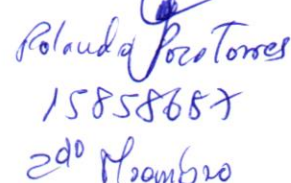 Rolando Pozo Torres
15858657
2do Miembro